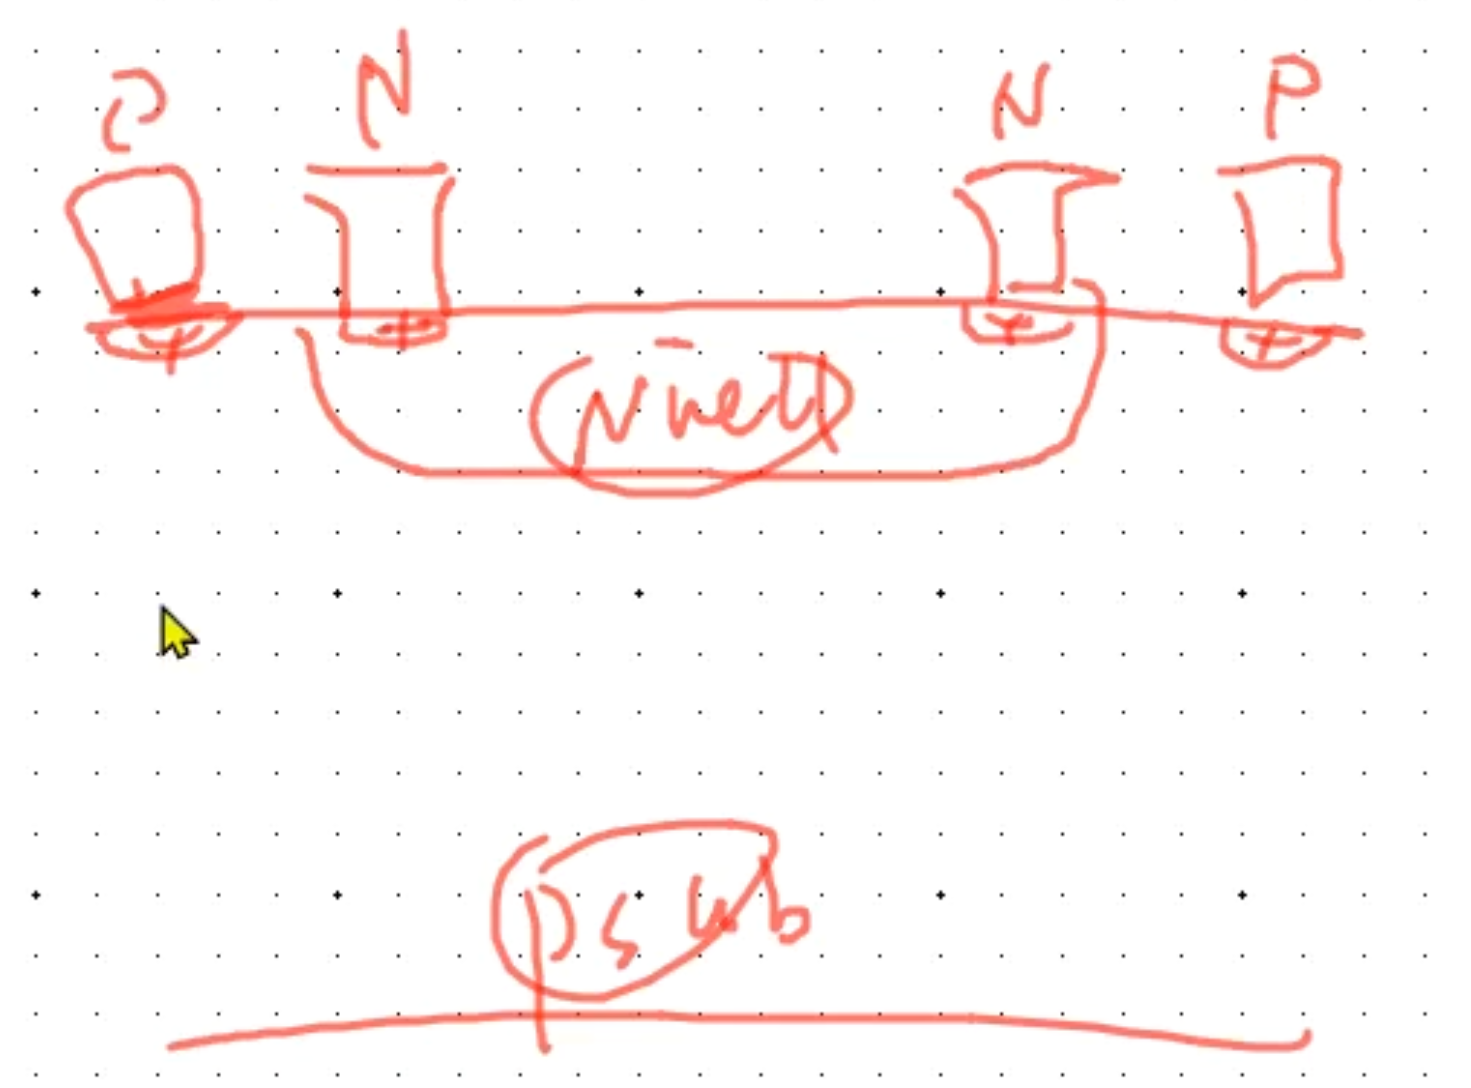 P N N P
+ + + +
Nwell
Psub